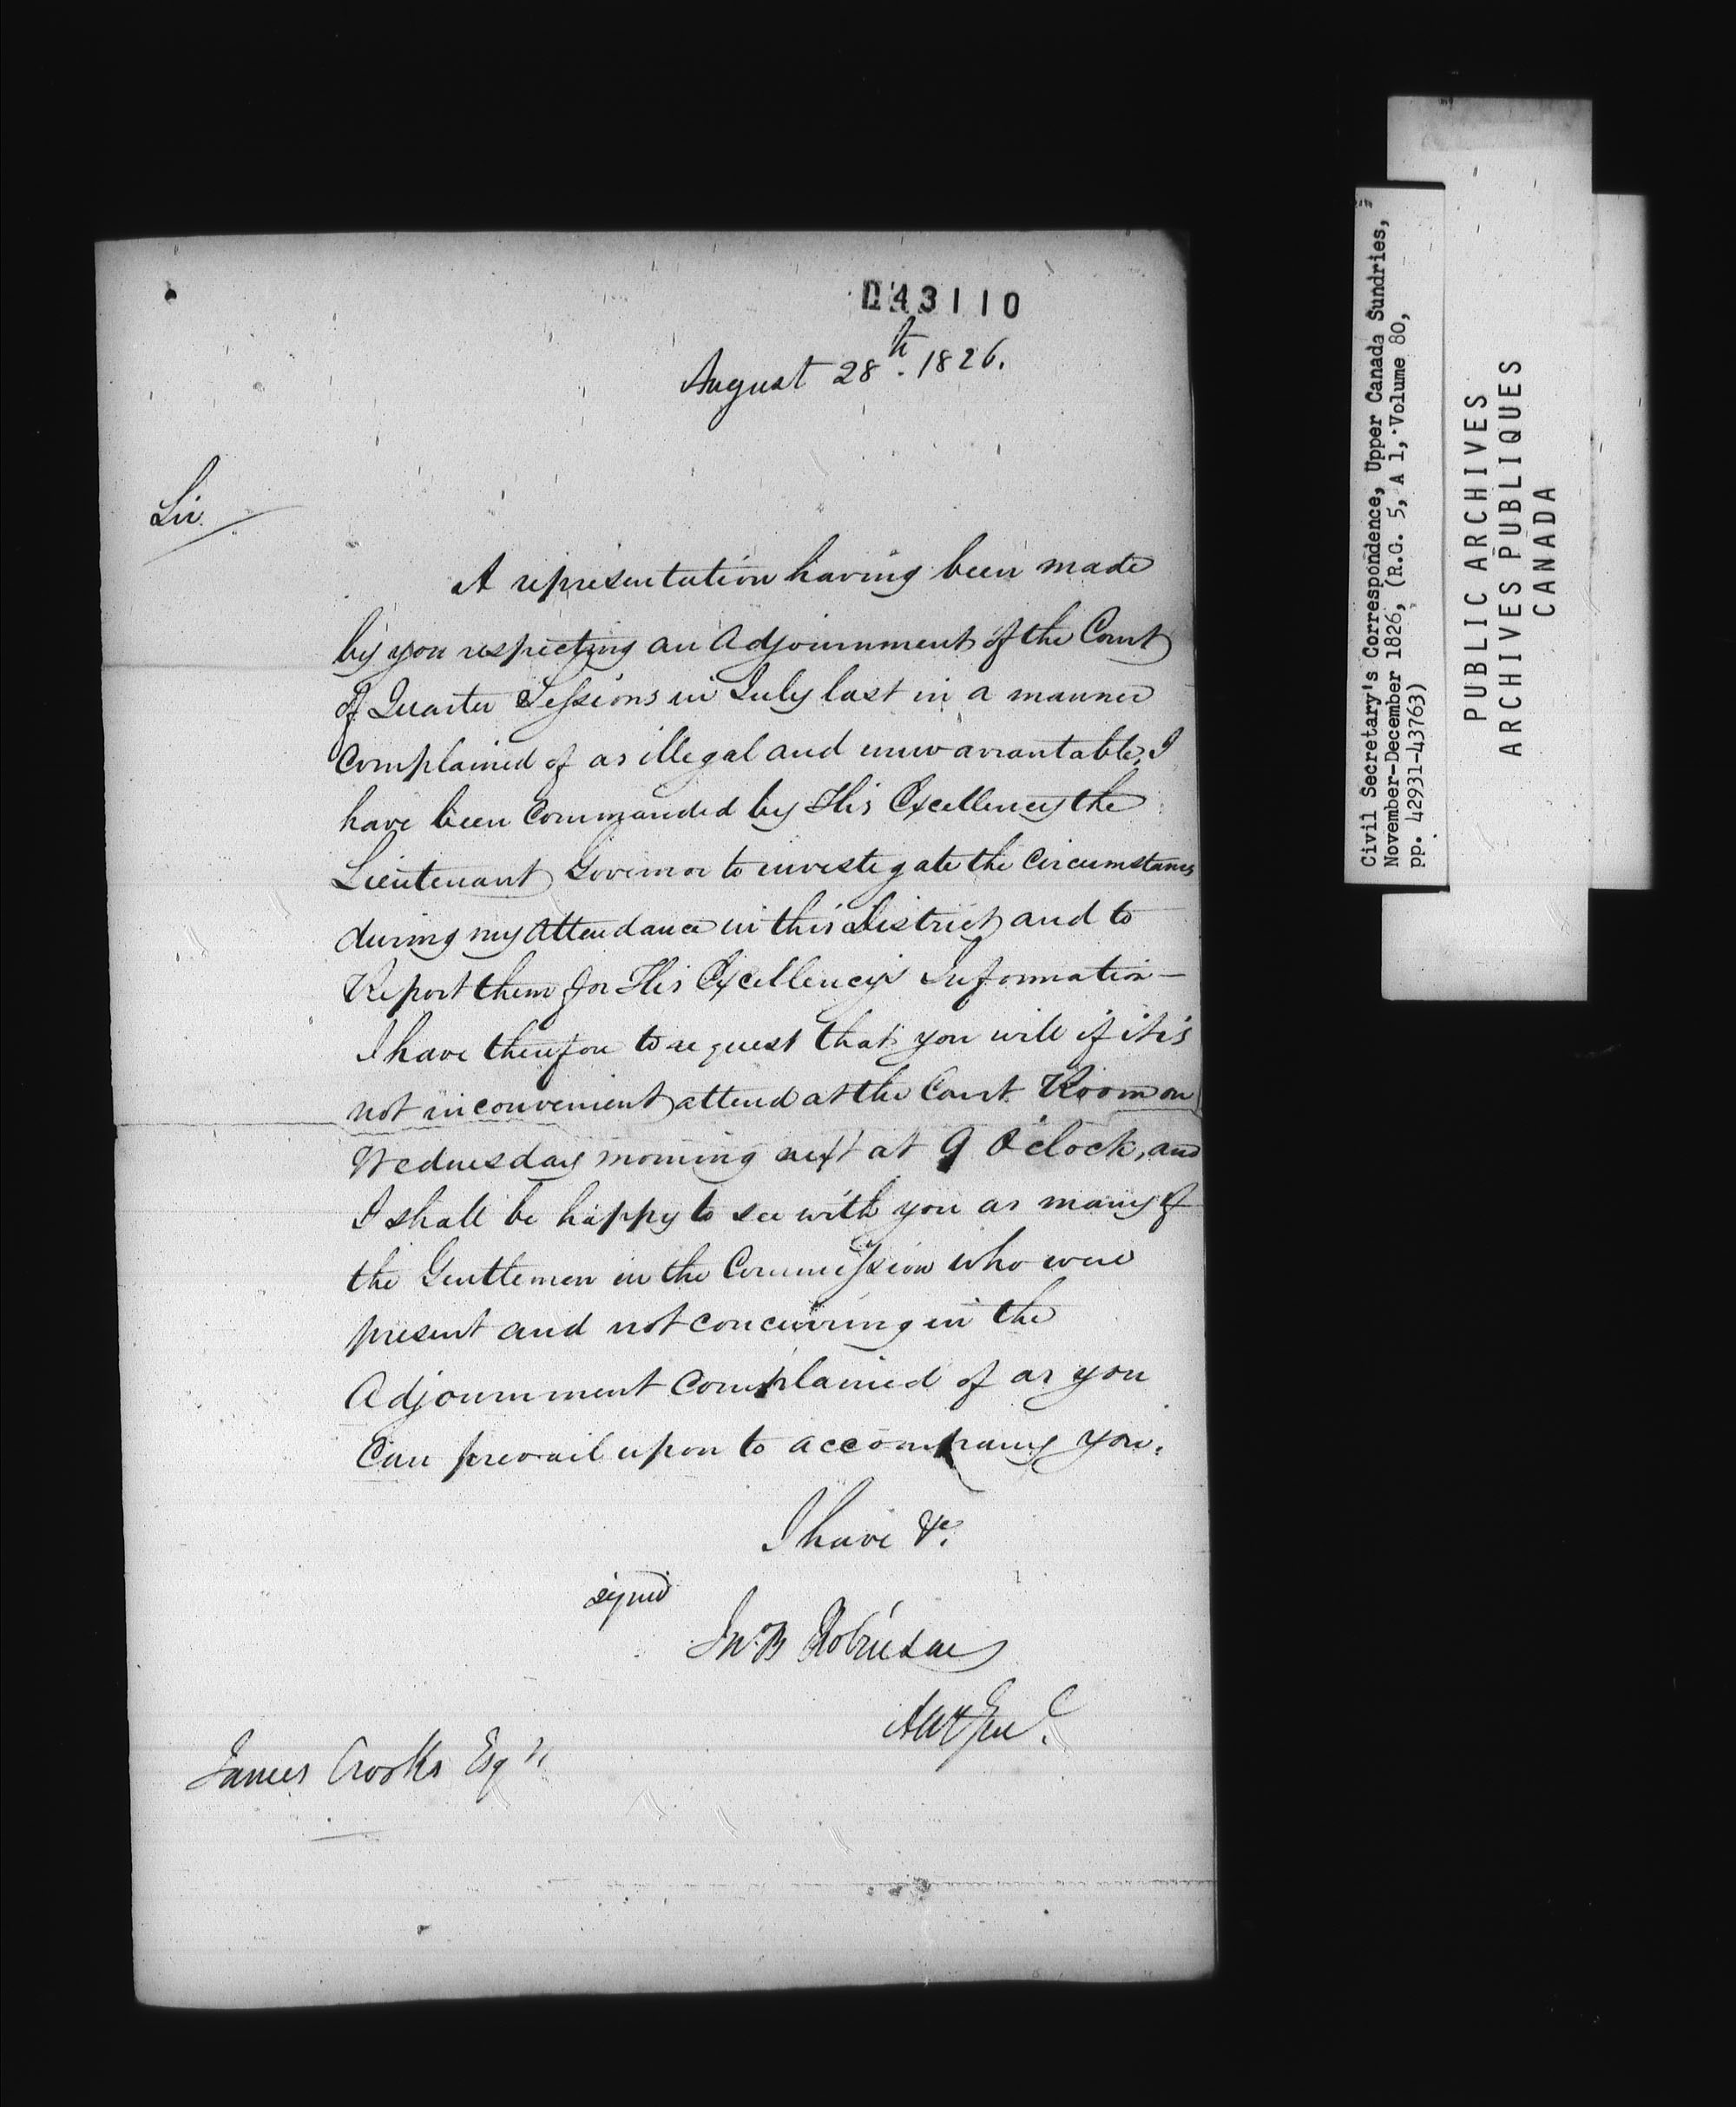 D43110
August 28th. 1826.
Sir
A representation having been made
by you respecting an Adjournment of the Court
of Quarter Sessions in July last in a manner
Complained of as illegal and unwarrantable, I
have been Commanded by His Excellency the
Lieutenant Governor to investigate the Circumstances
during my Attendance in this District and to
Report them for His Excellency's Information —
I have therefore to request that you will if it is
not inconvenient attend at the Court Room on
Wednesday morning next at 9 O'clock, and
I shall be happy to see with you as many of
the Gentlemen in the Commission who were
present and not concurring in the
Adjournment Complained of as you
Can prevail upon to accompany you.
I have &c.
signed
Jno. B Robinson
Att Genl.
James Crooks Esqr
Civil Secretary's Correspondence, Upper Canada Sundries,
November-December 1826, (R.G. 5, A 1, Volume 80,
pp. 42931-43763)
PUBLIC ARCHIVES
ARCHIVES PUBLIQUES
CANADA